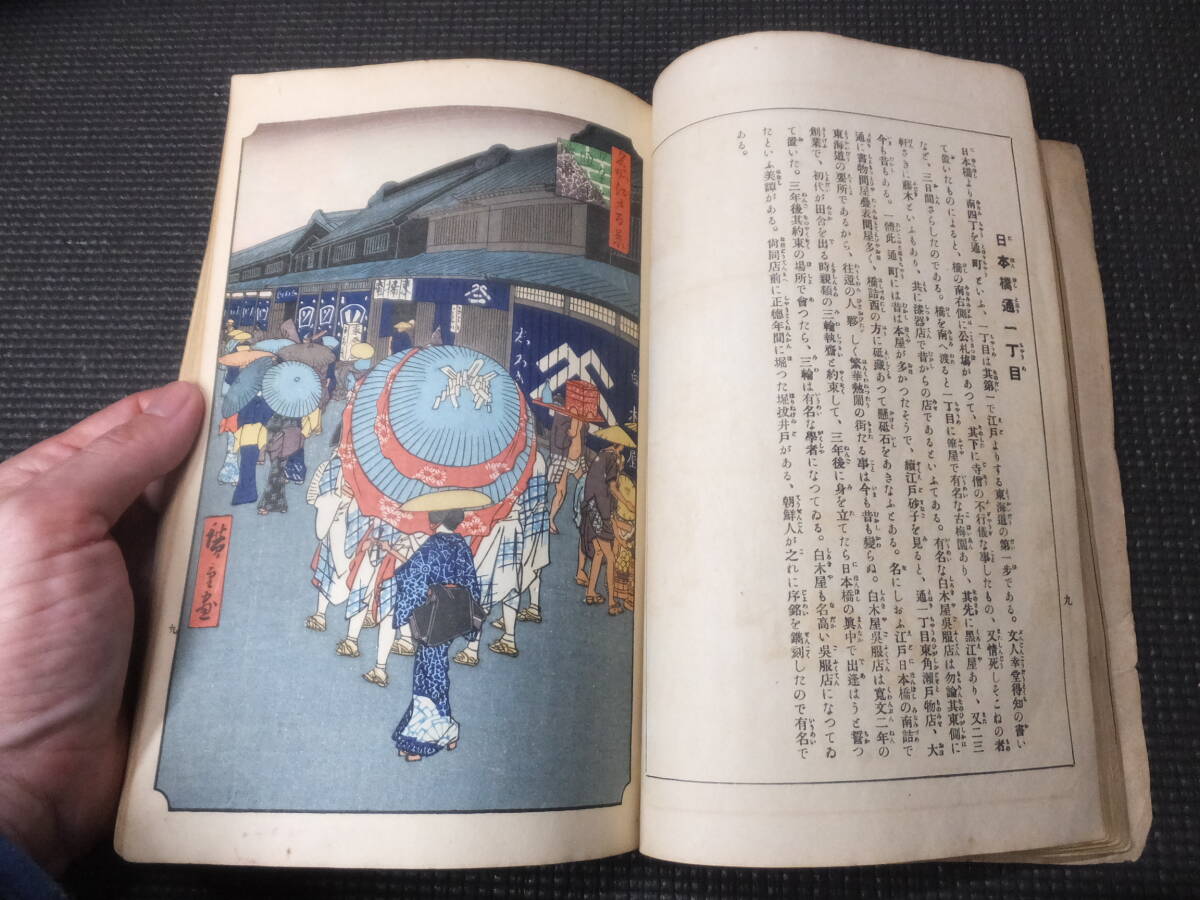 日本橋通一丁目
日本橋より南四丁を通町といふ、一丁目は其第一で江戸よりする東海道の第一歩である。文人幸堂得知の書い
て置いたものによると、橋の南右側に公札場があつて、其下に寺僧の不行儀な事したもの、又情死しそこねの者
など、三日間さらしたのである。橋を南へ渡ると一丁目に筆屋で有名な古梅園あり、其先に黒江屋あり、又二三
軒さきに藤木といふもあり、共に漆器店で昔からの店であるといふてある。有名な白木屋呉服店は勿論其東側に
今も昔もある。一體此通町には昔は本屋が多かつたそうで、續江戸砂子を見ると、通一丁目東角瀬戸物店、大
通に書物問屋疊表問屋多く、橋詰西の方に砥藏あつて懸砥石をあきなふとある。名にしおふ江戸日本橋の南詰で
東海道の要所であるから、往還の人夥しく繁華熱閙の街たる事は今も昔も變らぬ。白木屋呉服店は寛文二年の
創業で、初代が田舍を出る時親類の三輪執齋と約束して、三年後に身を立てたら日本橋の眞中で出逢はうと誓つ
て置いた。三年後其約束の場所で會つたら、三輪は有名な學者になつてゐる。白木屋も名高い呉服店になつてゐ
たといふ美譚がある。尚同店前に正德年間に堀つた堀拔井戸がある、朝鮮人が之れに序銘を鐫刻したので有名で
ある。
九
名所江戸百景
廣重画
九